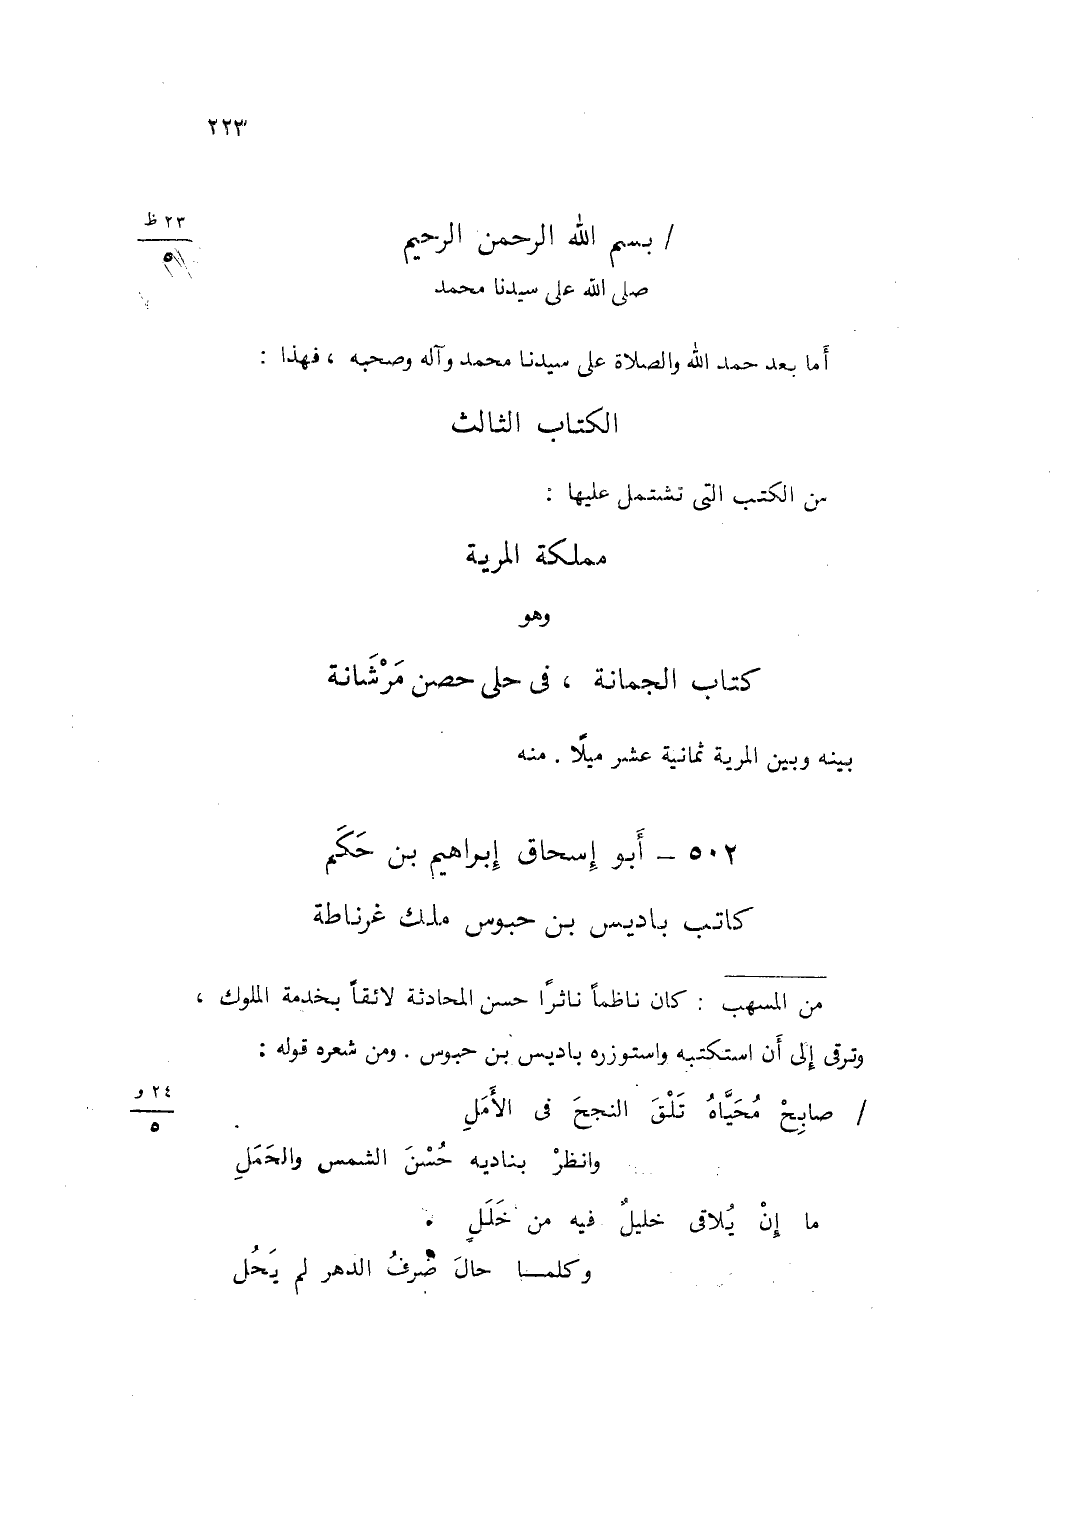 ٢٢٣
٢٣ ظ
٥
/ بسم الله الرحمن الرحيم
صلى الله على سيدنا محمد
أما بعد حمد الله والصلاة على سيدنا محمد وآله وصحبه ، فهذا :
الكتاب الثالث
من الكتب التى تشتمل عليها :
مملكة المرية
وهو
كتاب الجمانة ، فى حلى حصن مَرْشَانة
بينه وبين المرية ثمانية عشر ميلًا . منه
٥٠٢ – أَبو إِسحاق إِبراهيم بن حَكَم
كاتب باديس بن حبوس ملك غرناطة
من المسهب : كان ناظماً ناثرًا حسن المحادثة لائقاً بخدمة الملوك ،
وترقى إِلى أَن استكتبه واستوزره باديس بن حبوس . ومن شعره قوله :
٢٤ و
٥
/ صابِحْ مُحَيَّاهُ تَلْقَ النجحَ فى الأَمَلِ
وانظرْ بناديه حُسْنَ الشمس والحَمَلِ
ما إِنْ يُلاقى خليلٌ فيه من خَلَلٍ
وكلمـا حالَ صَرفُ الدهر لم يَحُل